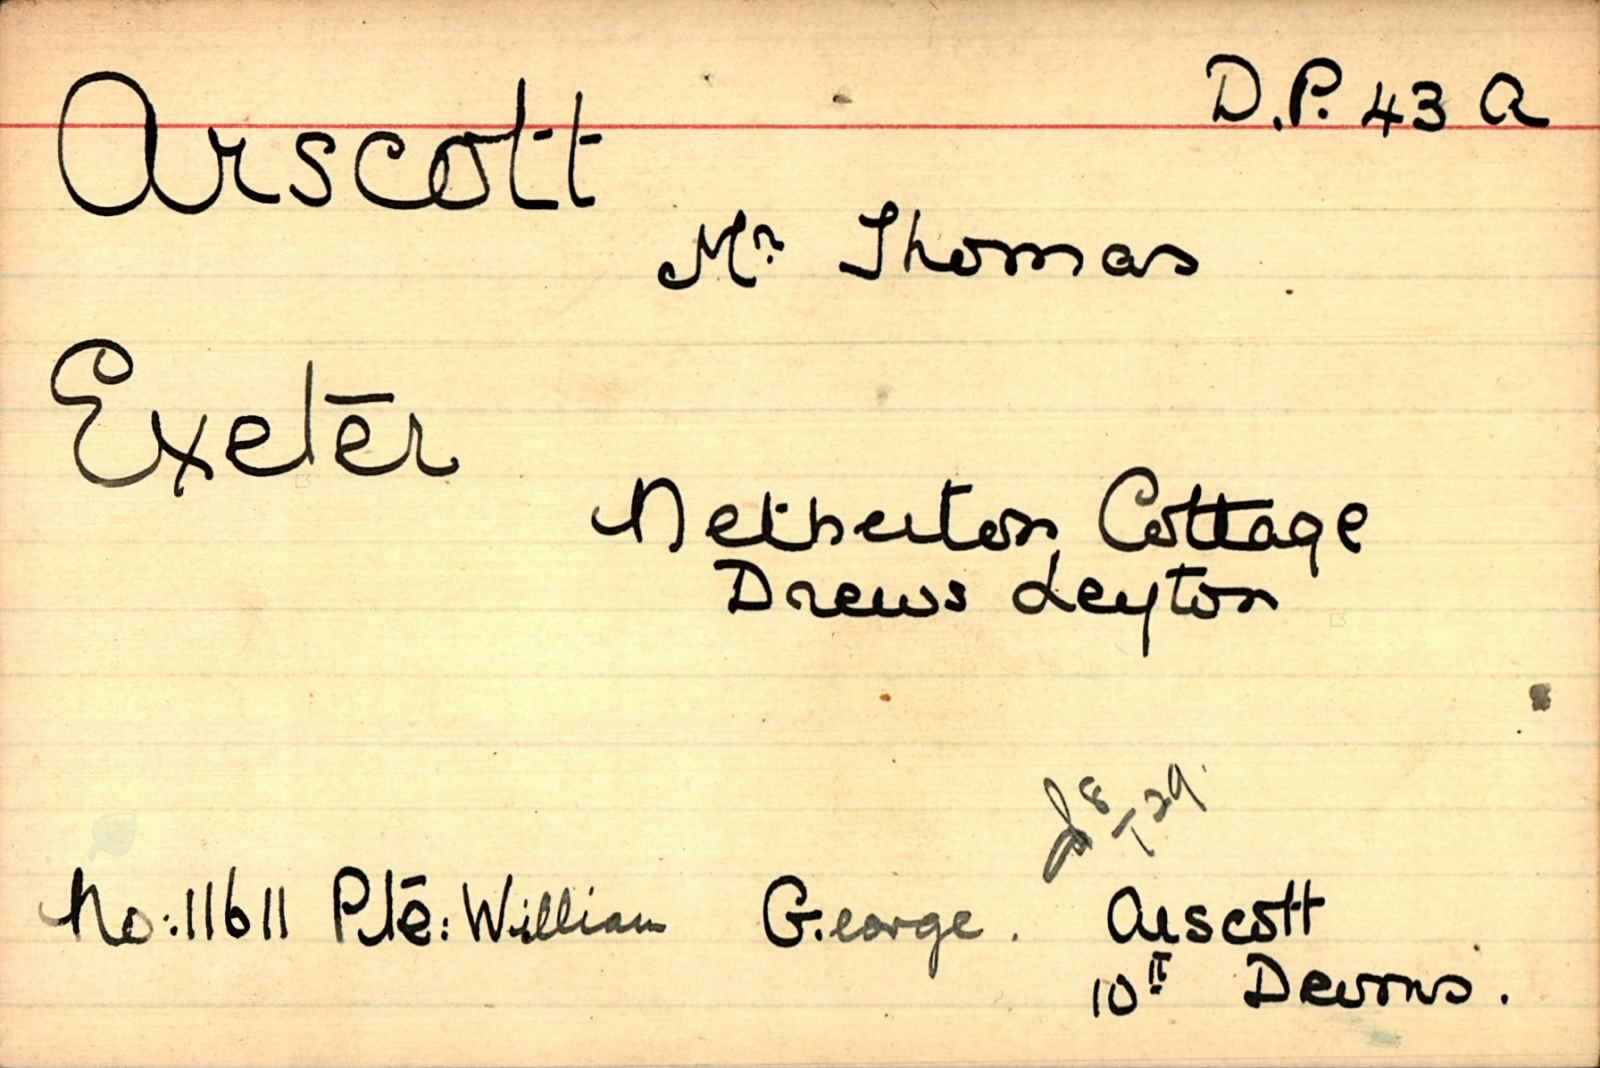 D.P. 43 A
Arscott
Mr Thomas
Exeter
Netherton Cottage
Drews Leyton
8/129
No: 11611 Pte: William George. Arscott
10th Devons.